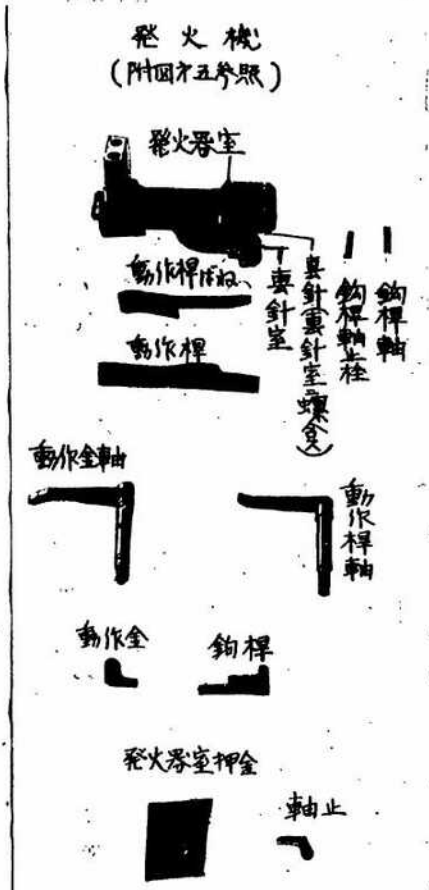 発火機
(附図才五参照)
発火器室
動作桿ばね
動作桿
撃針室
撃針(撃針室ニ螺食)
鈎桿軸止栓
鈎桿軸
動作金軸
動作桿軸
動作金
鈎桿
発火器室押金
軸止